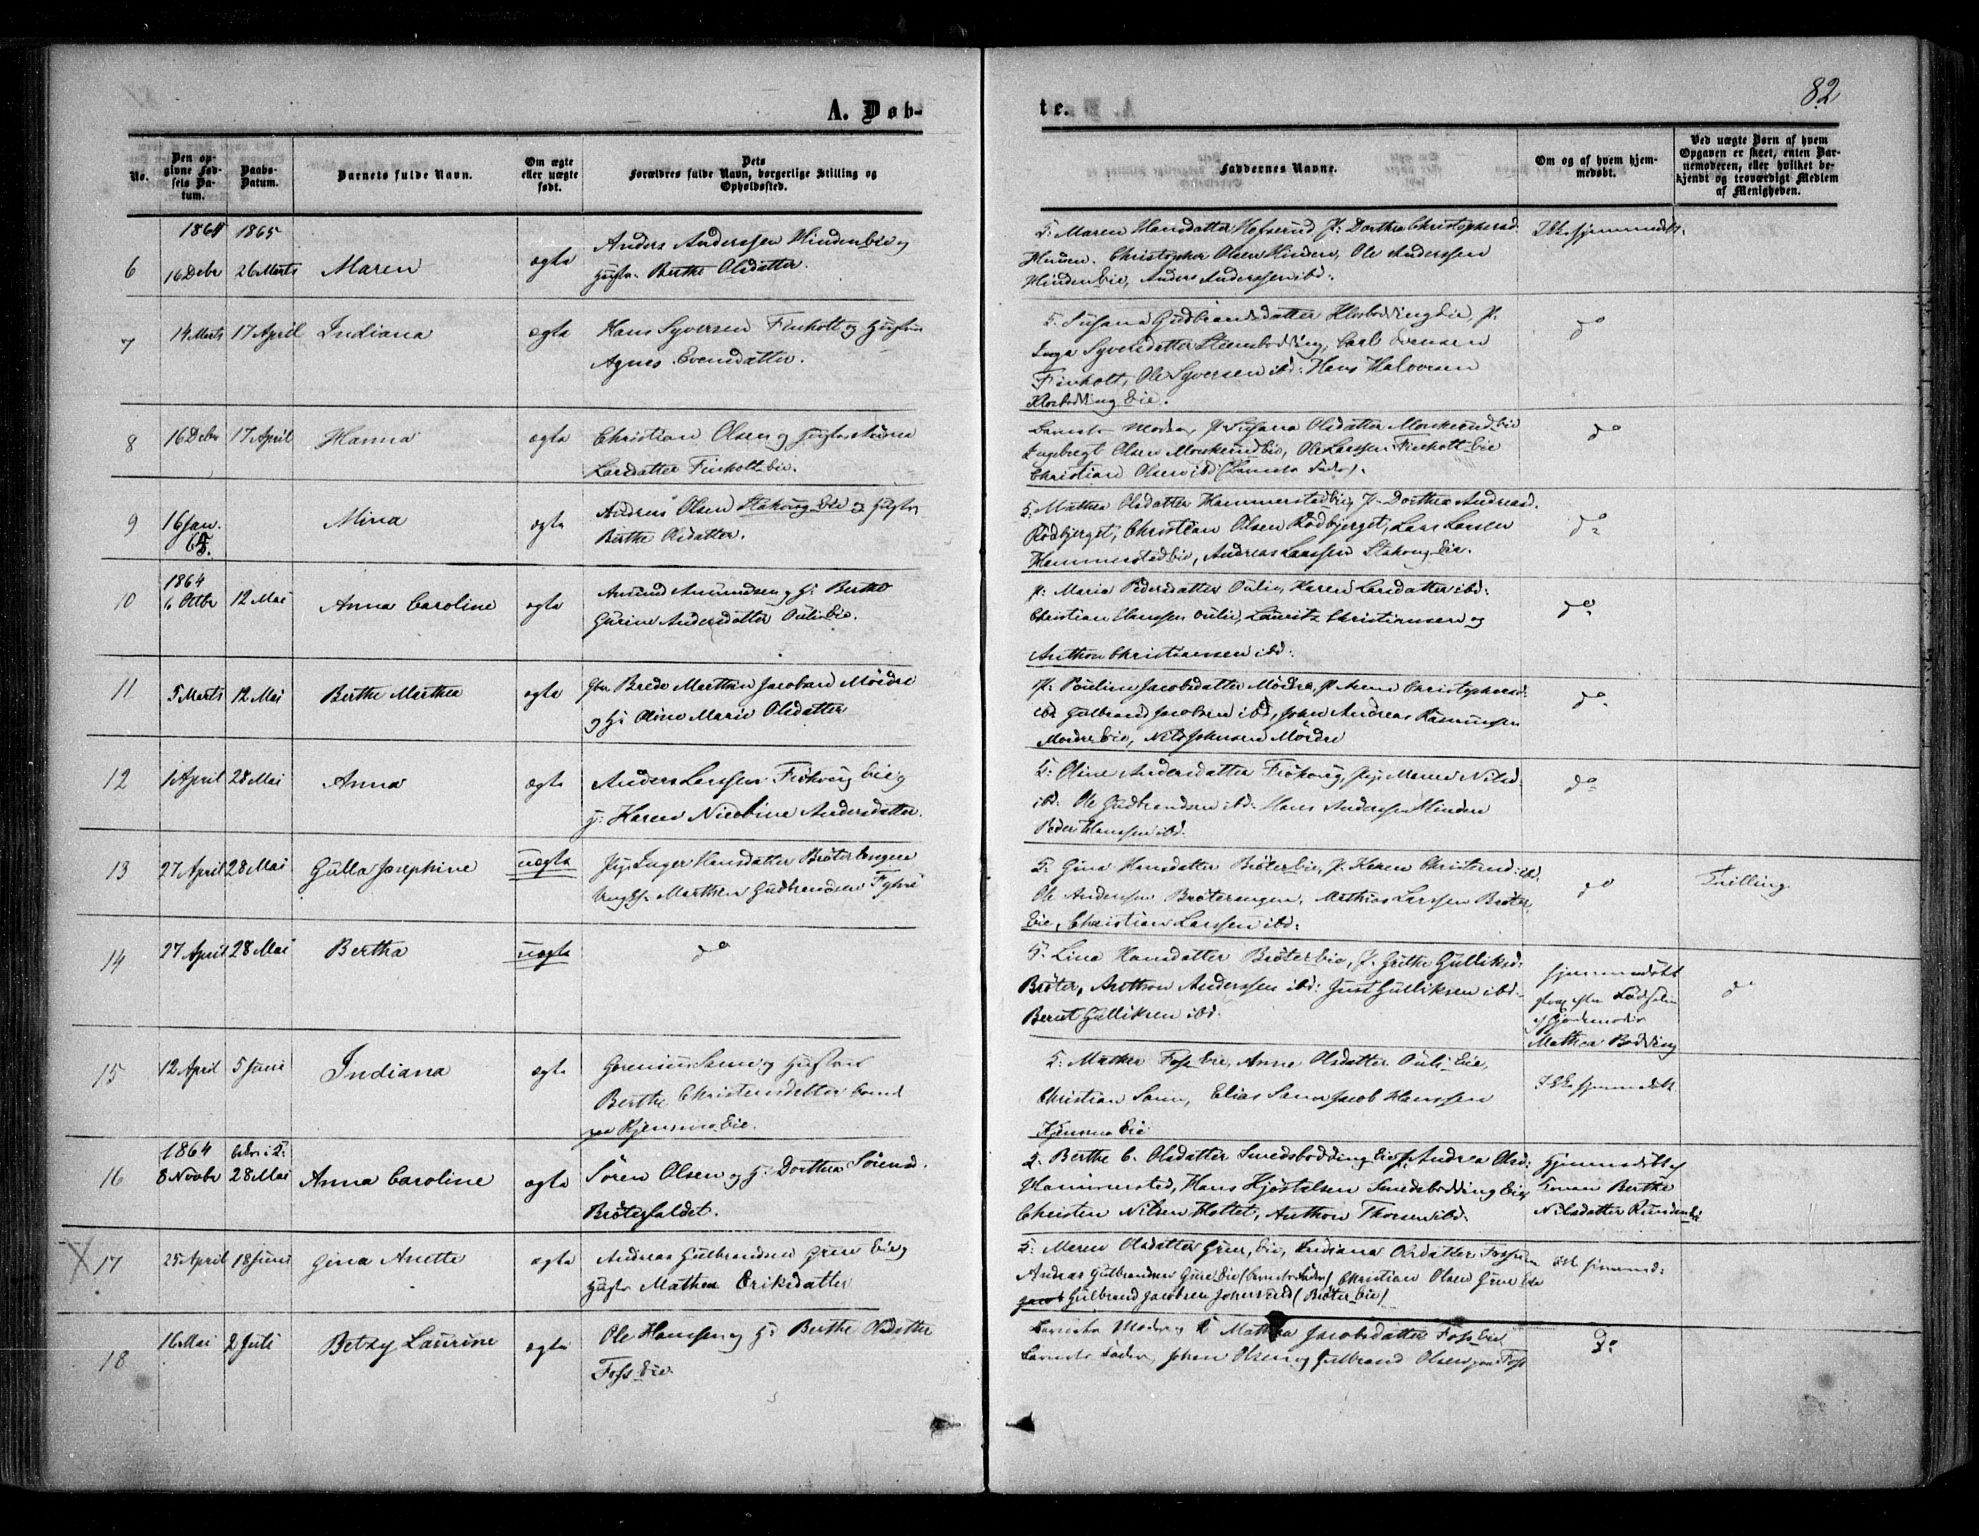 82
A. Døb-
te.
No.
Den op-
givne Fød-
sels Da-
tum.
Daabs-
Datum.
Barnets fulde Navn.
Om ægte
eller uægte
født.
Dets
Forældres fulde Navn, borgerlige Stilling og
Opholdssted.
Faddernes Navne.
Om og af hvem hjem-
medøbt.
Ved uægte Børn af hvem
Opgaven er skeet, enten Bar-
nemoderen, eller hvilket be-
kjendt og troværdigt Medlem
af Menigheden.
1864 1865
6 16 Debr 26 Marts Maren ægte
Anders Anderssen Hinden Eie og
Hustr. Berthe Olsdatter.
T. Maren Hansdatter Hofserud P: Dorthea Christophersd.
Hinden. Christopher Olsen Hinden, Ole Anderssen
Hinden Eie, Anders Anderssen ibd:
Ikke hjemmedøbt.
7 14 Marts 17 April Indiana ægte
Hans Syversen Finholt og Hustru
Agnes Evensdatter.
T. Susana Gudbrandsdatter Klosbodding Eie, P.
Inga Syversdatter Steensbodding, Carl Evensen
Finholt, Ole Syversen ibd: Hans Halvorsen
Klosbodding Eie.
do
8 16 Debr 17 April Hanna ægte
Christian Olsen og Hustr. Andrea
Larsdatter Finholt Eie.
Barnets Moder, P Susana Olsdatter Morskerud Eie
Ingebregt Olsen Morskerud Eie, Ole Larssen Finholt Eie
Christian Olsen ibd (Barnets Fader).
do
9 16 Jan. 65. Mina ægte
Andreas Olsen Stakvng Eie og Hustr.
Berthe Olsdatter.
T: Mathea Olsdatter Hammerstad Eie, P. Dorthea Andreasd.
Rødbjerget, Christian Olsen Rødbjerget, Lars Larsen
Hammerstad Eie, Andreas Larssen Eie.
do
1864
10 6 Octbr 12 Mai Anna Caroline ægte
Amund Amundsen og H: Berthe
Gurine Andersdatter Ouli Eie.
P: Maria Pedersdatter Oulie, Karen Larsdatter ibd:
Christian Hanssen Oulie, Lauritz Christiansen og
Anthon Christiansen ibd:
do
11 5 Marts 12 Mai Berthe Marthea ægte
Gbr. Brede Marthin Jacobsen Mørdre
og H: Oline Marie Olsdatter
P: Pouline Jacobsdatter Mørdre, P Anne Christophersd.
ibd Gulbrand Jacobsen ibd, Johan Andreas Rasmussen
Mørdre Eie, Nils Johnsen Mørdre
do
12 1 April 28 Mai Anna ægte
Anders Larssen Frøhoug Eie og
H: Karen Nicoline Andersdatter.
T: Oline Andersdatter Frøhoug, Pige Maren Nilsd.
ibd: Ole Gudbrandsen ibd: Hans Anderssen Hinden
Peder Hanssen ibd.
do
13 27 April 28 Mai Gulla Josephine uægte
Pige Inger Hansdatter Brøterengen
Ungk. Marthin Gudbrandsen
T: Gina Hansdatter Brøter Eie, P. Karen Christensd. ibd.
Ole Anderssen Brøterengen, Mathias Larssen Brøter
Eie, Christian Larssen ibd:
do
Tvilling
14 27 April 28 Mai Bertha uægte
do
T: Lina Hansdatter Brøter Eie, P. Grethe Gulliksd:
Brøter, Anthon Anderssen ibd: Just Gulliksen ibd.
Bernt Gulliksen ibd.
hjemmedøbt
strax efter Fødselen
af Gjordemoder
Mathea Bodding
do
15 12 April 5 Juni Indiana ægte
og Hustru
Berthe Christensdatter
Kjensmo Eie.
T. Mathea Foss Eie, Anne Olsdatter Ouli Eie,
Christian Elias Jacob Hanssen
Kjensmo Eie
Ikke hjemmedøbt
1864
16 8 Novbr 28 Mai Anna Caroline ægte
Søren Olsen og H: Dorthea Sørensd.
Brøterfaldet.
T. Berthe C. Olsdatter Smedsbodding Eie, P. Andrea Olsd:
Hammerstad, Hans Kjøstelsen Smedsbodding Eie
Christen Nilsen Anthon Thorsen ibd.
Hjemmedøbt af
Konen Berthe
Nilsdatter
X 17 25 April 18 Juni Gina Anette ægte
Andreas Gulbrandsen Grue Eie og
Hustr. Mathea Eriksdatter
T: Maren Olsdatter Grue, Eie, Indiana Olsdatter
Andreas Gulbrandsen Grue Eie (Barnets Fader) Christian Olsen Grue Eie
Gulbrand Jacobsen (Brøter Eie)
ikke hjemmed:
18 16 Mai 2 Juli Betzy Laurine ægte
Ole Hanssen og H: Berthe Olsdatter
Foss Eie.
Barnets Moder og P Mathea Jacobsdatter Foss Eie,
Barnets Fader, Johan Olsen og Gulbrand Olsen Foss
Do